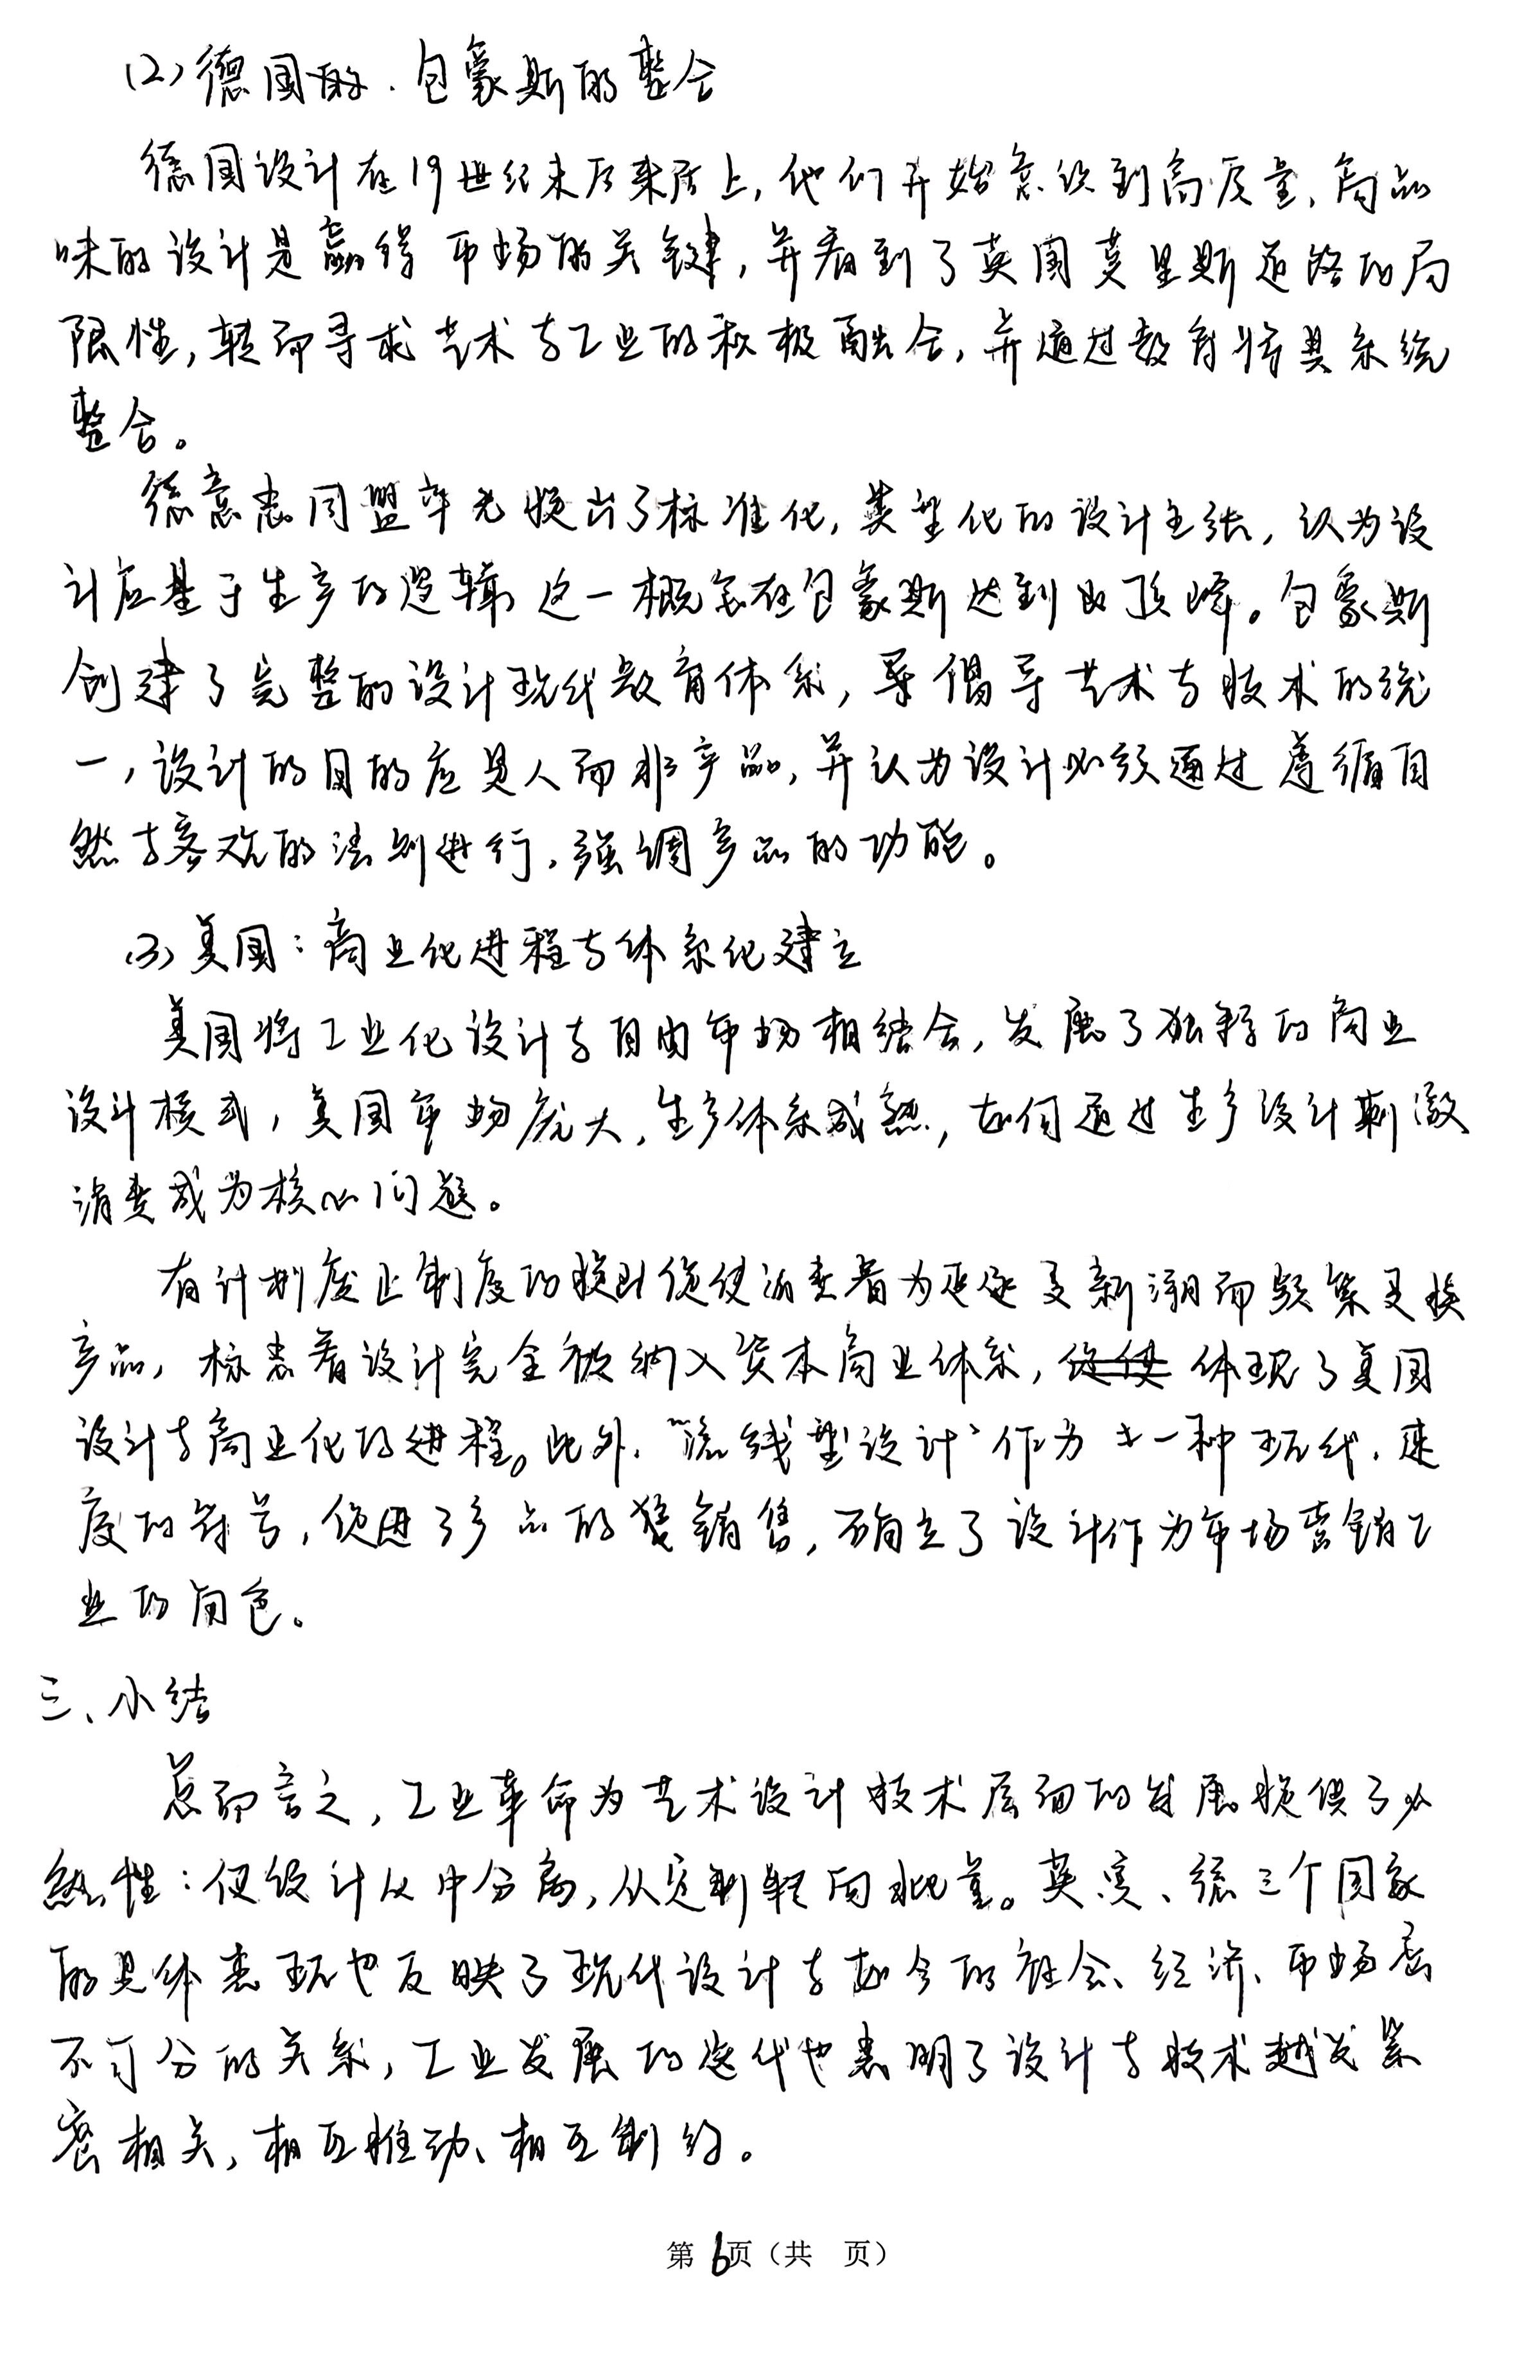 (2)德国的.包豪斯的整合
德国设计在19世纪末后来居上,他们开始意识到高质量,高品
味的设计是赢得市场的关键,并看到了英国莫里斯道路的局
限性,转而寻求艺术与工业的积极融合,并通过教育将其系统
整合。
德意志同盟率先提出了标准化,类型化的设计主张,认为设
计应基于生产的逻辑,这一概念在包豪斯达到 顶峰。包豪斯
创建了完整的设计现代教育体系,倡导艺术与技术的统
一,设计的目的应是人而非产品,并认为设计必须通过遵循自
然与客观的法则进行,强调产品的功能。
(3)美国:商业化进程与体系化建立
美国将工业化设计与自由市场相结合,发展了独特的商业
设计模式,美国市场庞大,生产体系成熟,如何通过生产设计刺激
消费成为核心问题。
有计划废止制度的提出促使消费者为追逐新潮而频繁更换
产品,标志着设计完全被纳入资本商业体系,促使体现了美国
设计与商业化的进程。此外,“流线型设计”作为一种现代,速
度的符号,促进了产品的销售,确立了设计作为市场营销工
业的角色。
三、小结
总而言之,工业革命为艺术设计技术层面的发展提供了必
然性:使设计从中分离,从定制转向批量。英、美、德三个国家
的具体表现也反映了现代设计与如今的社会、经济、市场密
不可分的关系,工业发展的迭代也表明了设计与技术越发紧
密相关,相互推动、相互制约。
第6页(共 页)